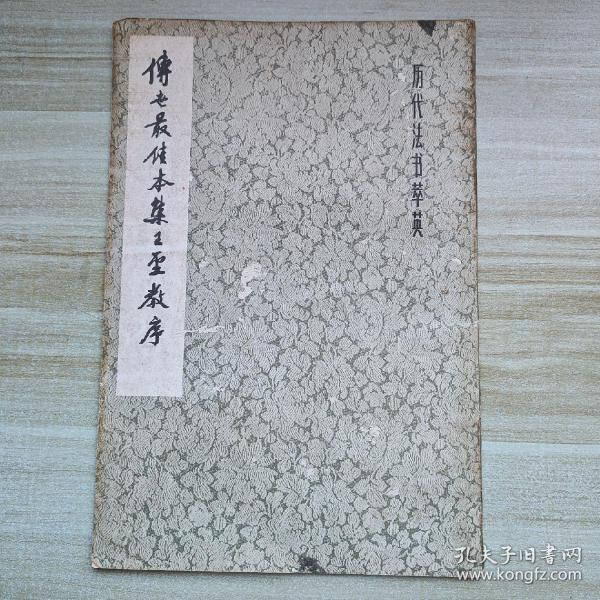 历代法书萃英
傳世最佳本集王聖教序
孔夫子旧书网
www.kongfz.com